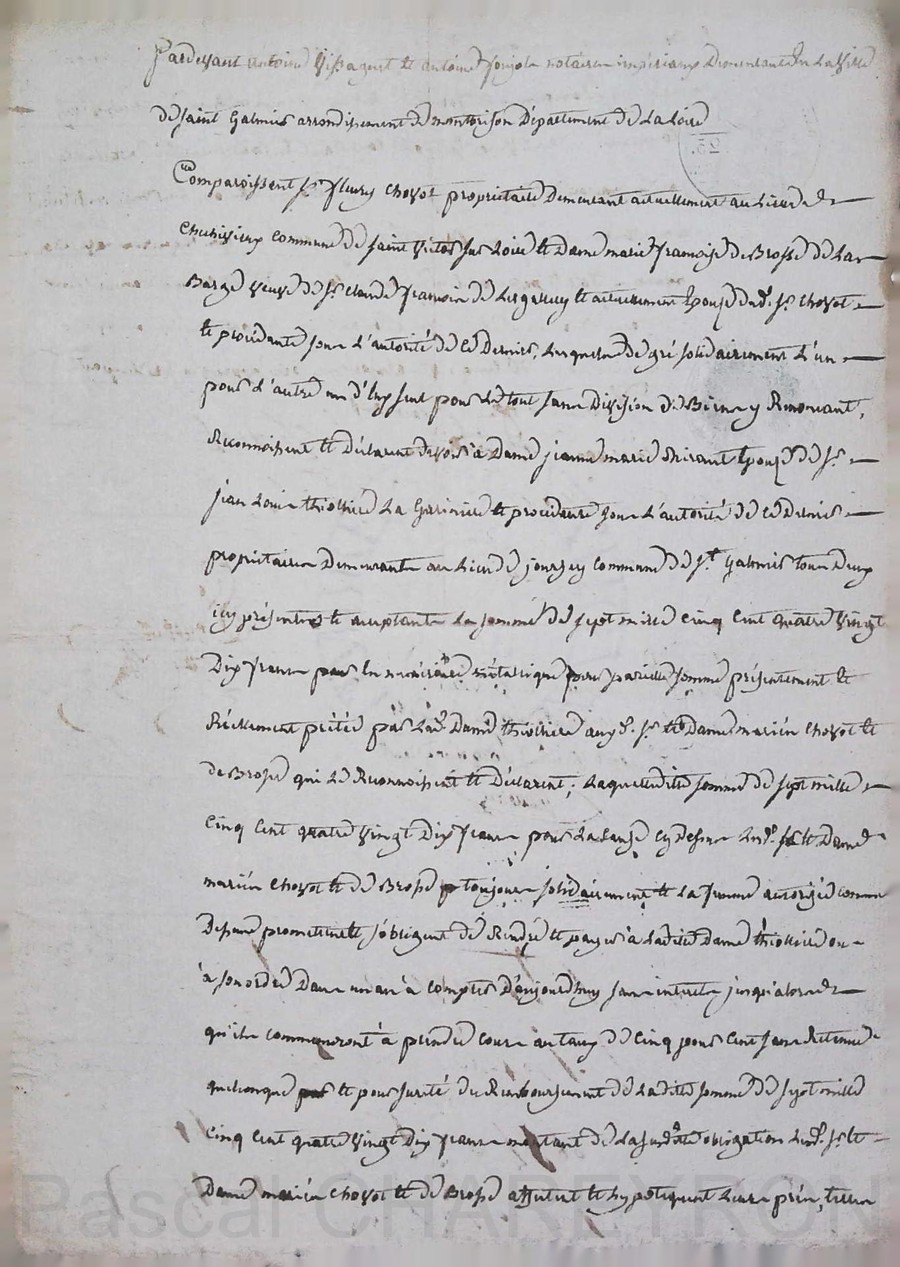 Pardevant antoine Vissaguet et antoine notaires impériaux Demeurants En La Ville
de saint Galmier arrondissement de montbrison Département de La Loire
Comparoissent Sr. fleury Chovot propriétaire Demeurant actuellement au Lieu de
commune de saint Victor sur Loire et Dame marie françoise de Brosse de La
Barge veuve de Sr. Claude françois de et actuellement Epouse dud. Sr. Chovot
et procédante sous L'autorité de ce Dernier, Lesquels de gré solidairement L'un
pour L'autre un d'Eux seul pour Le tout sans Division de Biens y Renonçant,
Reconnoissent et Déclarent devoir à Dame jeanne marie Epouse de Sr.
jean Louis thiolliere La et procédante sous L'autorité de ce Dernier
propriétaires Demeurants au Lieu de joursey commune de St. Galmier tous Deux
icy présents et acceptants La somme de sept mille cinq cent quatre vingt
Dix francs en numéraire métallique pour pareille somme présentement et
Réellement prêtée par Lad. Dame thiolliere auxd. Sr. et Dame mariés Chovot et
de Brosse qui Le Reconnoissent et Déclarent; Laquelle dite somme de sept mille
cinq cent quatre vingt Dix francs pour La cause cy Dessus Lesd. Sr. et Dame
mariés Chovot et de Brosse toujours solidairement et La femme autorisée comme
Dessus promettent et s'obligent de Rendre et payer à Ladite Dame thiolliere ou
à son ordre Dans un an à compter D'aujourd'huy sans interets jusqu'alors
qu'ils commenceront à prendre cours au taux de cinq pour cent sans Retenue
quelconque et pour sureté du Remboursement de Ladite somme de sept mille
cinq cent quatre vingt Dix francs montant de La susdite obligation Lesd. Sr. et
Dame mariés Chovot et de Brosse affectent et hypothequent Leurs prés, terres
Pascal CHAREYRON